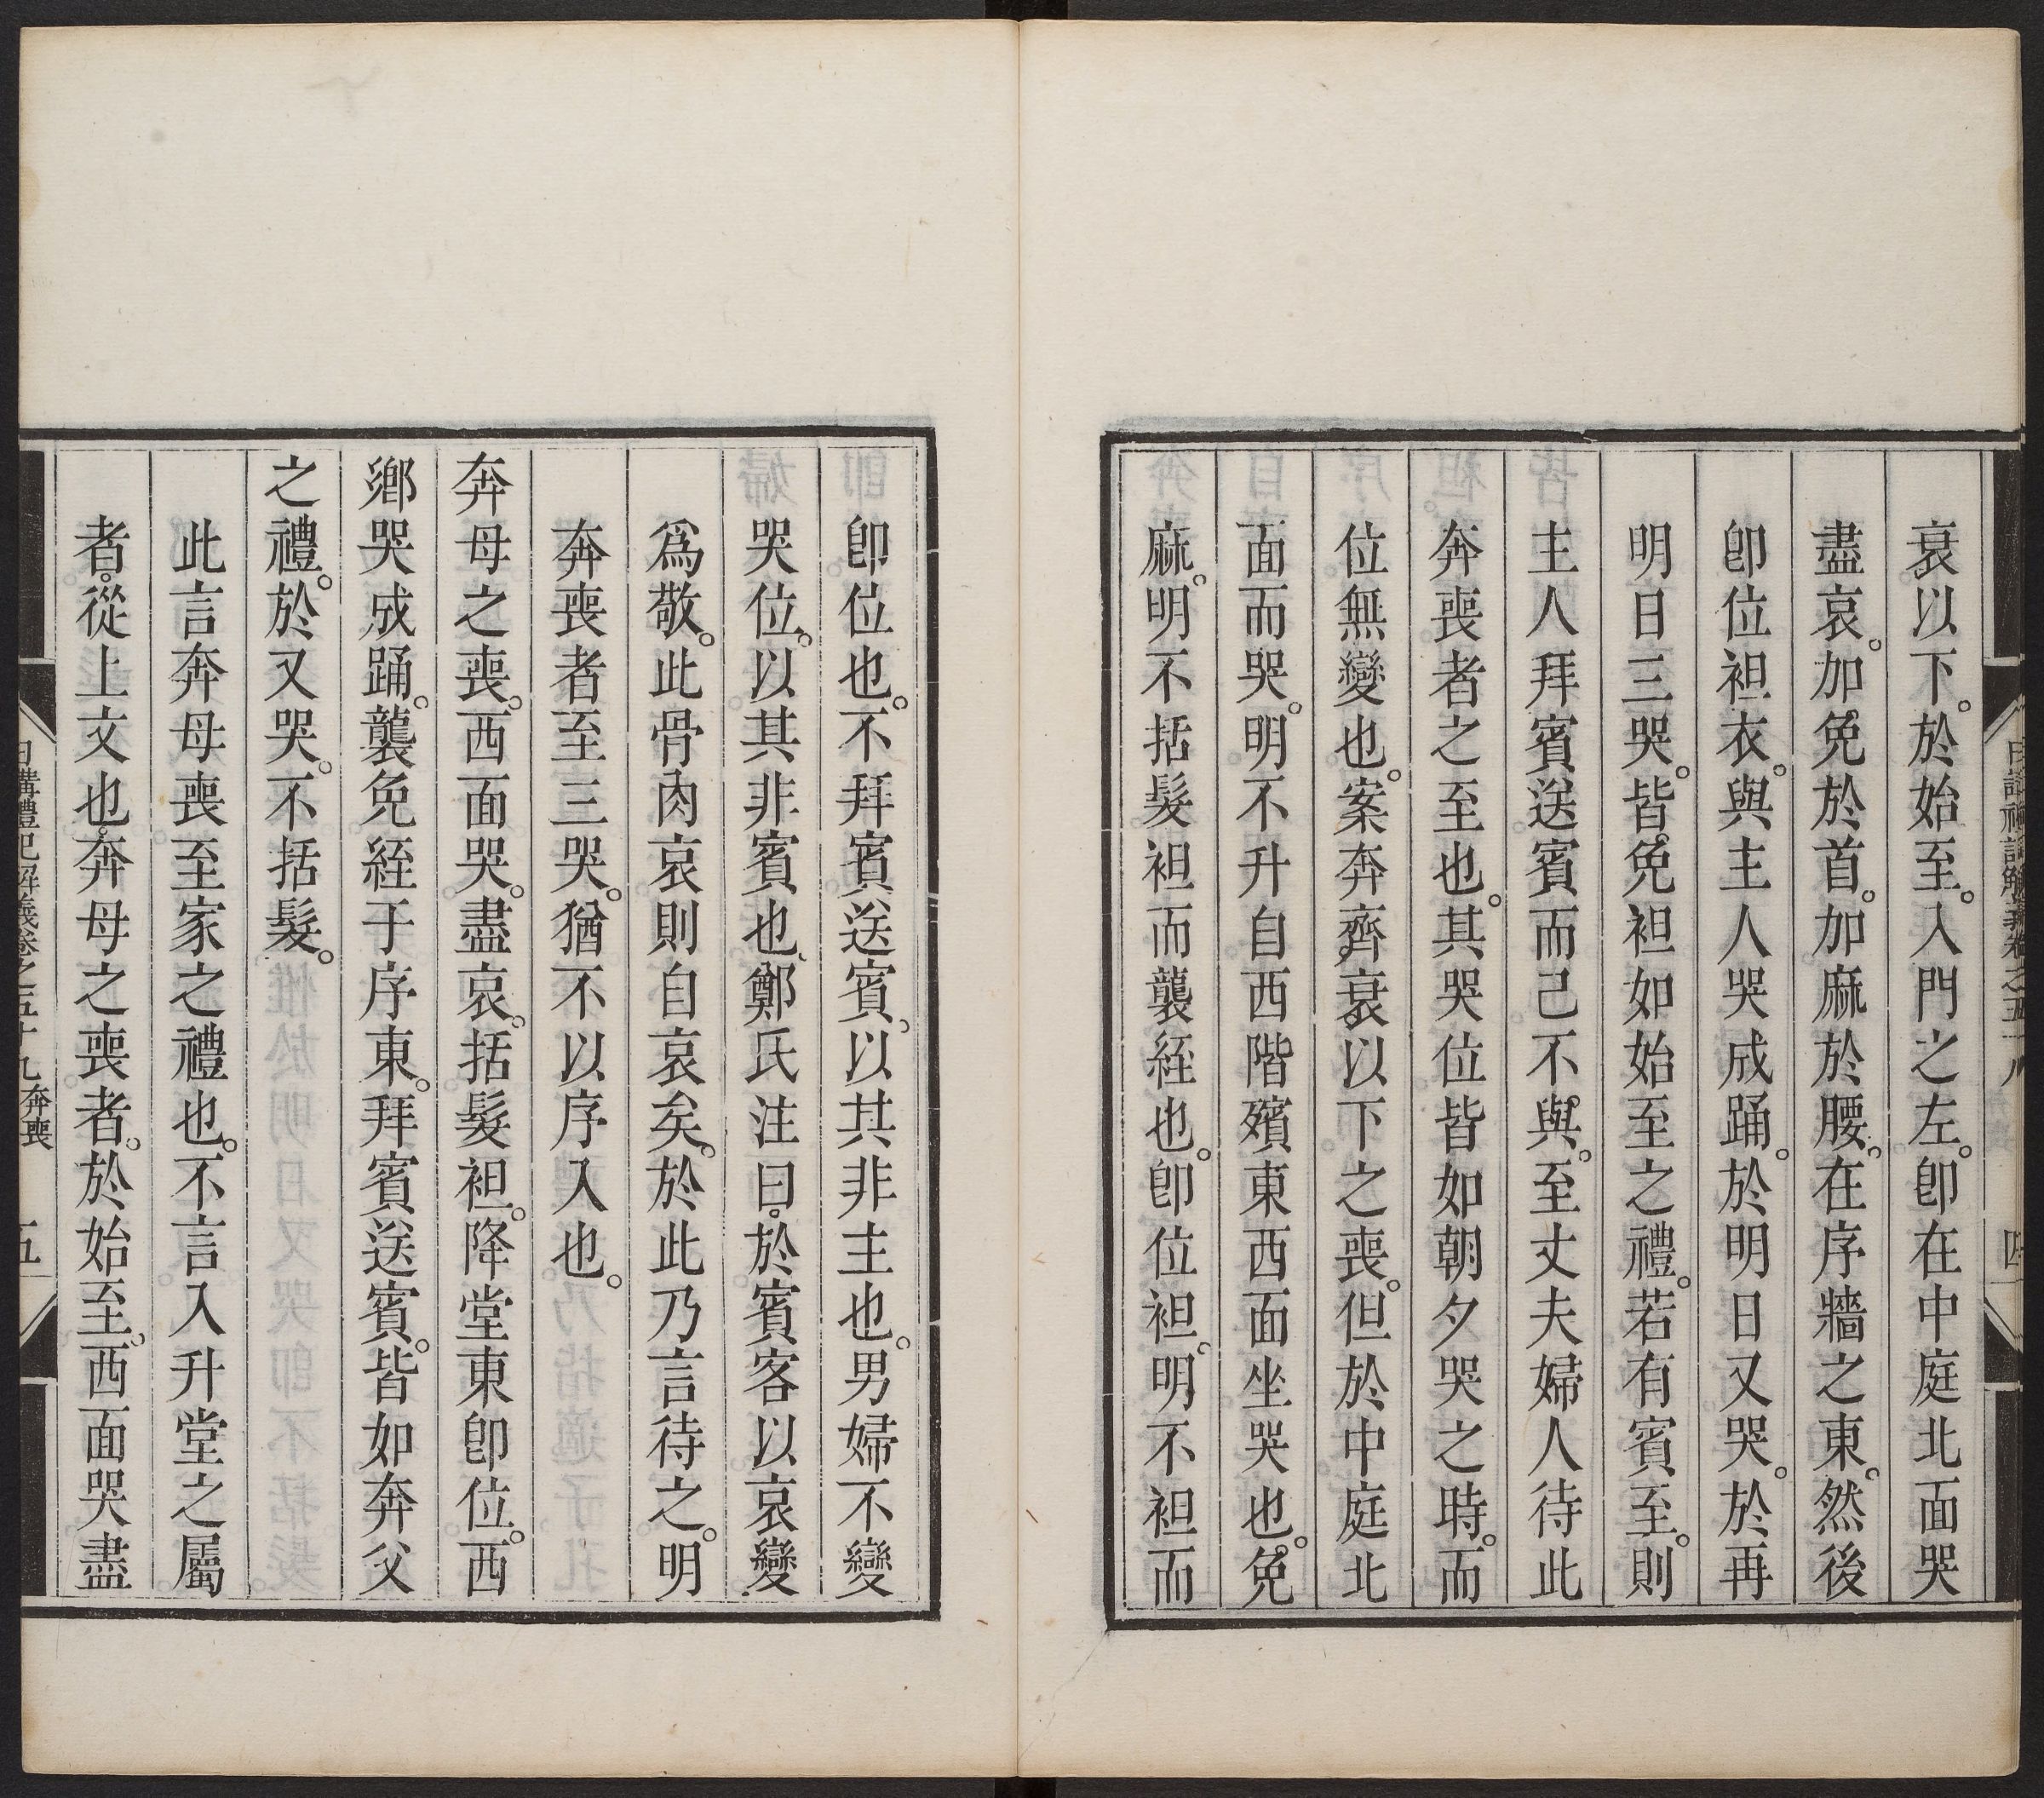 衰以下。於始至。入門之左。卽在中庭北面哭
盡哀。加免於首。加麻於腰。在序牆之東。然後
卽位袒衣。與主人哭成踊。於明日又哭。於再
明日三哭。皆免袒如始至之禮。若有賓至。則
主人拜賓送賓而己不與。至丈夫婦人待此
奔喪者之至也。其哭位皆如朝夕哭之時。而
位無變也。案奔齊衰以下之喪。但於中庭北
面而哭。明不升自西階殯東西面坐哭也。免
麻。明不括髮袒而襲絰也。卽位袒。明不袒而
卽位也。不拜賓送賓。以其非主也。男婦不變
哭位。以其非賓也。鄭氏注曰。於賓客以哀變
爲敬。此骨肉哀則自哀矣。於此乃言待之。明
奔喪者至三哭。猶不以序入也。
奔母之喪。西面哭。盡哀。括髮袒。降堂東卽位。西
鄉哭成踊。襲免絰于序東。拜賓送賓。皆如奔父
之禮。於又哭。不括髮。
此言奔母喪至家之禮也。不言入升堂之屬
者。從上文也。奔母之喪者。於始至。西面哭盡
日講禮記解義卷之五十九 奔喪 五